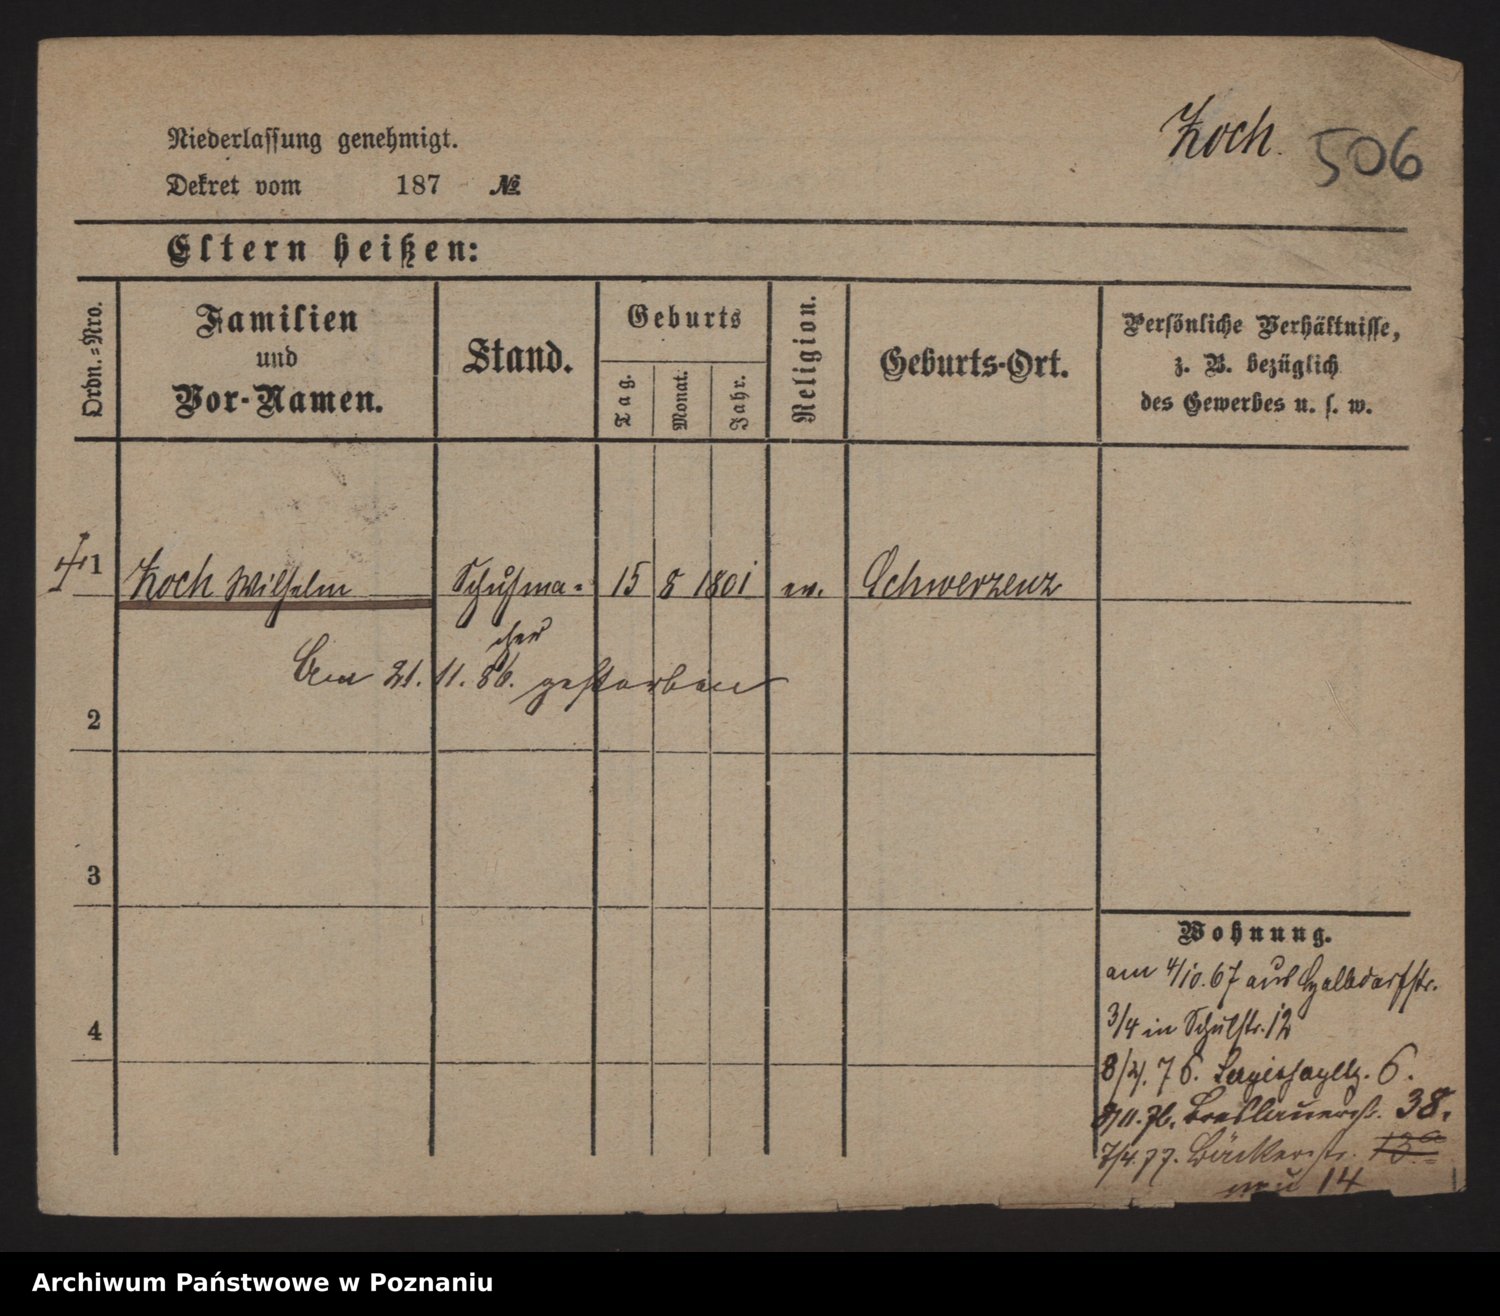 Niederlassung genehmigt.
Koch. 506
Dekret vom 187 №
Eltern heißen:
Ordn.=Nro.
Familien
und
Vor-Namen.
Stand.
Geburts
Tag. Monat. Jahr.
Religion.
Geburts-Ort.
Persönliche Verhältnisse,
z. B. bezüglich
des Gewerbes u. s. w.
1 Koch Wilhelm Schuhma= 15 8 1801 ev. Schwersenz
cher
Am 21. 11. 86. gestorben
2
3
4
Wohnung.
am 4/10. 67 aus Halbdorfstr.
3/4 in Schulstr. 12
8/4. 76. 6.
8/11. 76. Breslauerstr. 38.
7/4. 77. Bäckerstr. 13a
neu 14
Archiwum Państwowe w Poznaniu